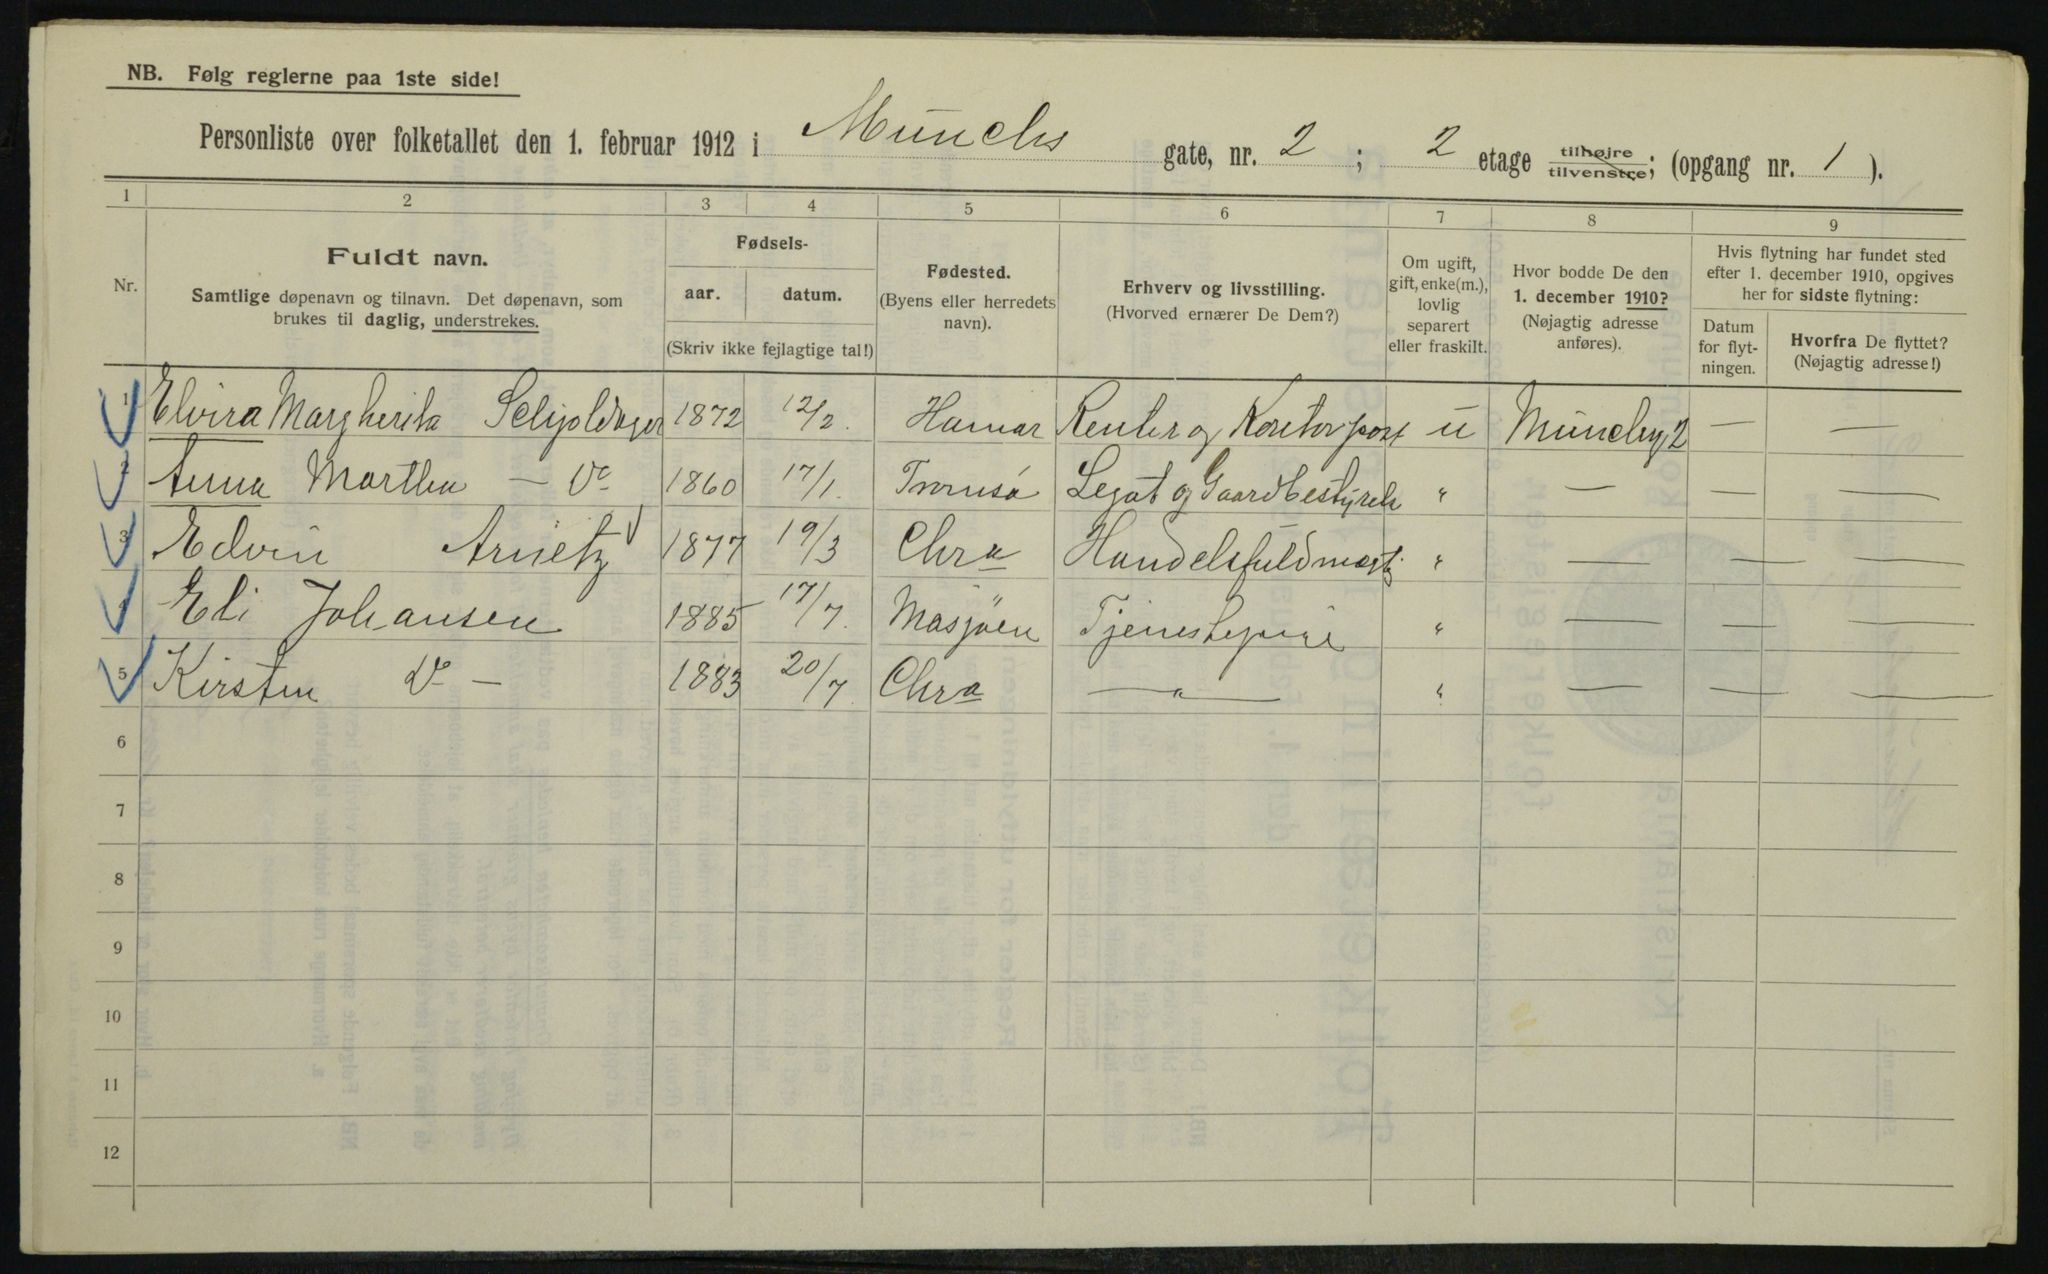 NB. Følg reglerne paa 1ste side!
Personliste over folketallet den 1. februar 1912 i Münchs gate, nr. 2 ; 2 etage tilhøjre tilvenstre; (opgang nr. 1 ).
1 2 3 4 5 6 7 8 9
Nr.
Fuldt navn.
Samtlige døpenavn og tilnavn. Det døpenavn, som
brukes til daglig, understrekes.
Fødsels-
aar. datum.
(Skriv ikke fejlagtige tal!)
Fødested.
(Byens eller herredets
navn).
Erhverv og livsstilling.
(Hvorved ernærer De Dem?)
Om ugift,
gift, enke(m.),
lovlig
separert
eller fraskilt.
Hvor bodde De den
1. december 1910?
(Nøjagtig adresse
anføres).
Hvis flytning har fundet sted
efter 1. december 1910, opgives
her for sidste flytning:
Datum
for flyt-
ningen.
Hvorfra De flyttet?
(Nøjagtig adresse!)
1 Elvira Margherita 1872 12/2. Hamar Renter og u Münchsg 2 — —
2 Anna Martha — Do 1860 17/1. Tromsø Legat og Gaardbestyrels " — — —
3 Edvin Arnetz 1877 19/3 Chra Handelsfuldmægtig " — — —
4 Eli Johansen 1885 17/7. Mosjöen Tjenestepige " — — —
5 Kirsten Do — 1883 20/7 Chra — " — " — — —
6
7
8
9
10
11
12